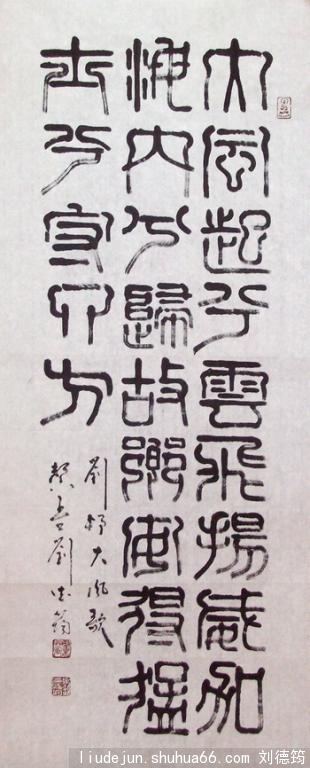 大風起兮雲飛揚威加
海内兮歸故鄉安得猛
士兮守四方
劉邦大風歌
劉德筠
liudejun.shuhua66.com 刘德筠